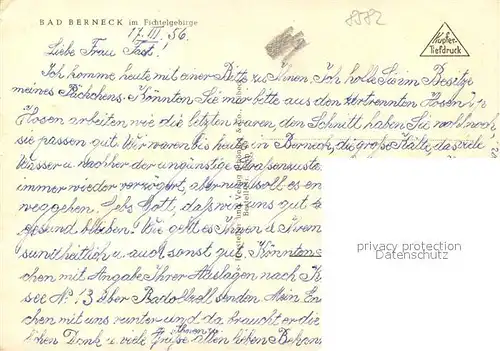 BAD BERNECK im Fichtelgebirge
8572
Kupfer-
Tiefdruck
17. III. 56.
Liebe Frau Fast!
Ich komme heute mit einer Bitte zu Ihnen. Ich hoffe Sie im Besitze
meines Päckchens. Könnten Sie mir bitte aus den zertrennten Hosen
Hosen arbeiten wie die letzten waren, den Schnitt haben Sie wohl noch
sie passen gut. Wir waren bis heute in Berneck, die große Kälte, das viele
Wasser u. nachher der ungünstige Straßenzusta
immer wieder verzögert, aber nun soll es en
weggehen. Gebs Gott, daß wir uns gut
gesund bleiben. Wie geht es Ihnen u. Ihren
sundheitlich u. auch sonst gut. Könnten
chen mit Angabe Ihrer Auslagen nach
see No 13 über Radolfzell senden. Mein En
chen mit uns runter und da braucht er die
lichen Dank u. viele Grüße Ihnen u. allen lieben Bekann
privacy protection
Datenschutz